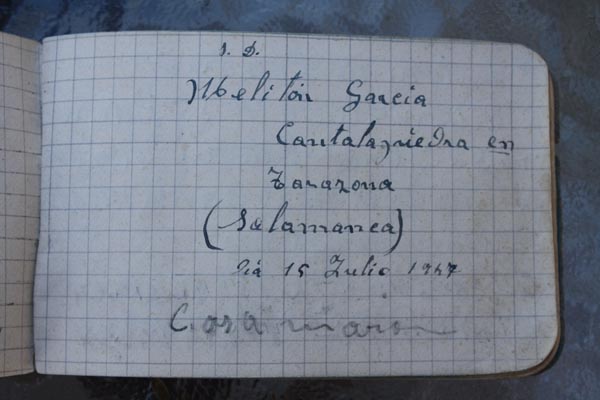 S. D.
Melitón Garcia
Cantalapiedra en
Tarazona
(Salamanca)
Día 15 Julio 1947